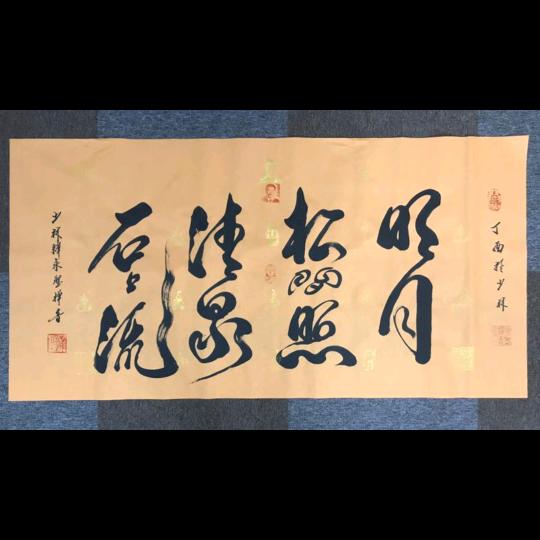 丁酉於少林
明月
松間照
清泉
石上流
少林釋永